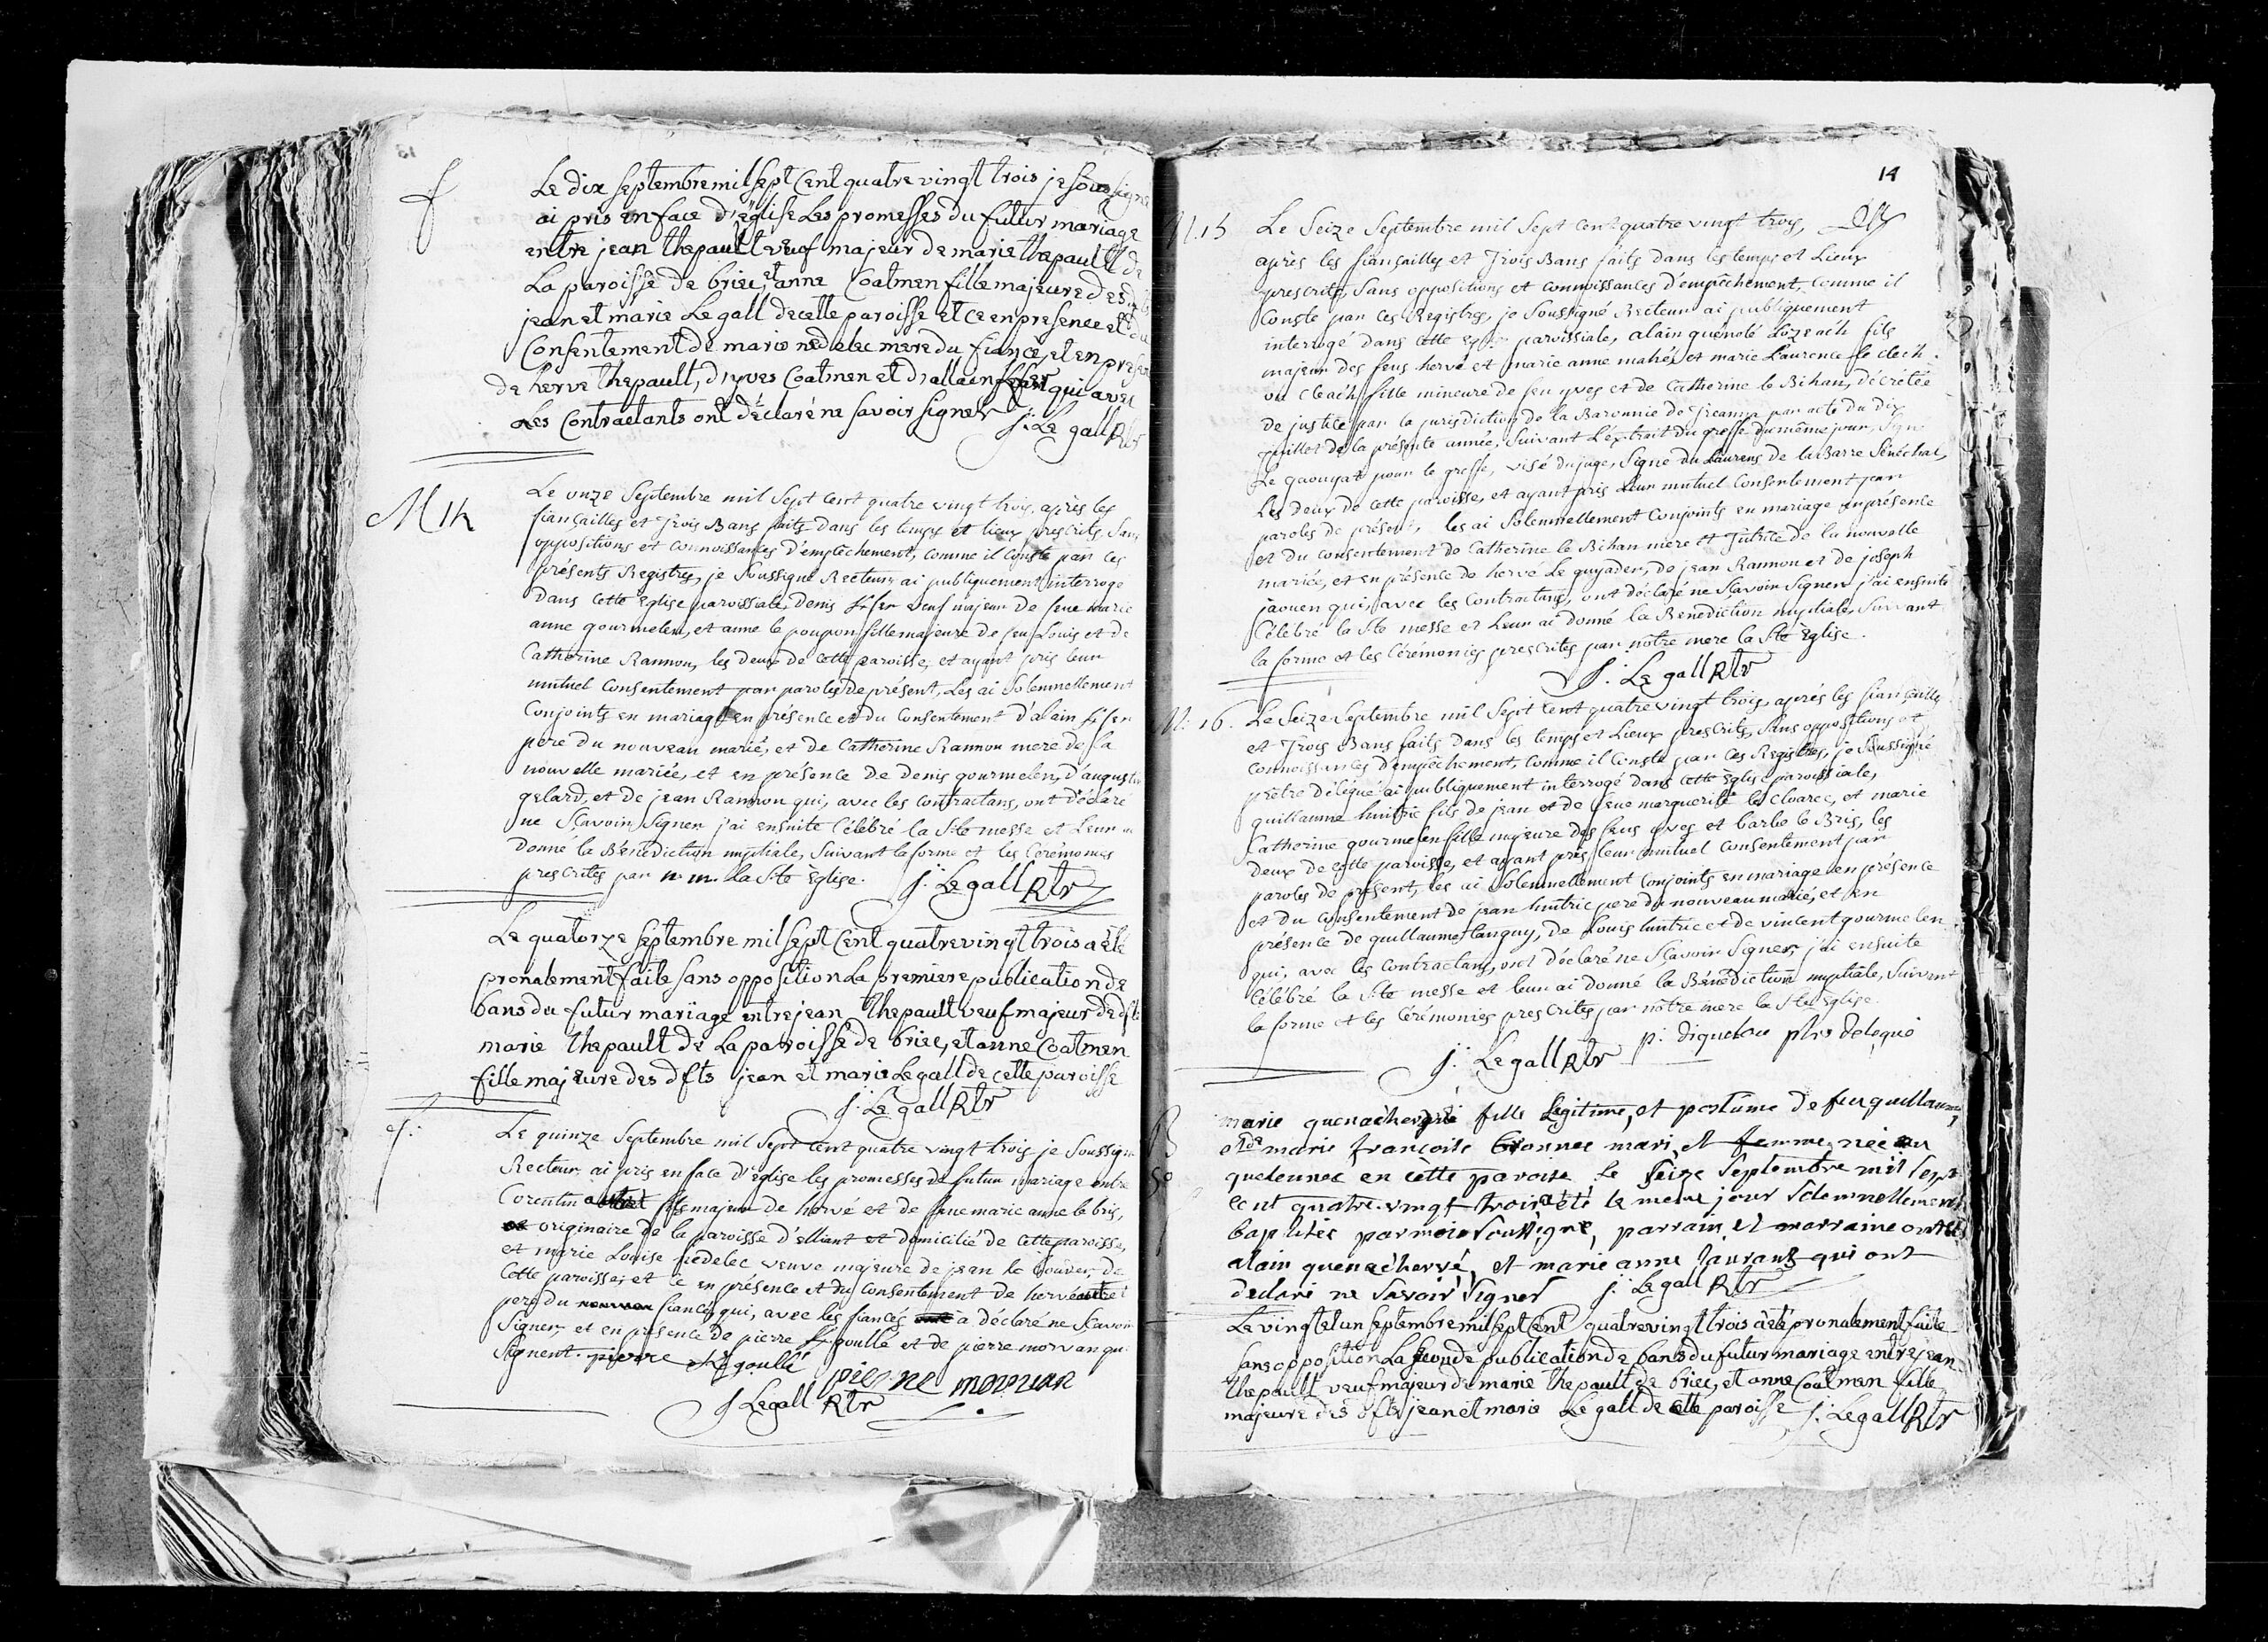 f
Le dix septembre mil sept Cent quatre vingt trois je soussigné
ai pris en face d'église Les promesses du futur mariage
entre jean thepault veuf majeur de marie thepault de
La paroisse de briec, et anne Coatmen fille majeure des
jean et marie Le gall de cette paroisse et ce en presence et du
Consentement de marie nedelec mere du fiancé, et en
de herve thepault, d'yves Coatmen et d'allain qui avec
Les Contractants ont déclaré ne savoir signer j: Le gall Rtr
M 14
Le onze Septembre mil Sept Cent quatre vingt trois, après les
fiançailles et Trois Bans faits dans les temps et lieux prescrits, Sans
oppositions et connoissances d'empêchement, comme il Conste par ces
présents Registres, je Soussigné Recteur ai publiquement interrogé
dans cette Eglise paroissiale, denis veuf majeur de feue marie
anne gourmelen, et anne le poupon fille majeure de feu Louis et de
Catherine Rannou, les deux de cette paroisse, et ayant pris leur
mutuel Consentement par paroles de présent, Les ai Solemnellement
Conjoints en mariage en présence et du Consentement d'alain
pere du nouveau marié, et de Catherine Rannou mere de la
nouvelle mariée, et en présence de Denis gourmelen, d'augustin
gelard, et de jean Rannou qui, avec les contractans, ont déclaré
ne Sçavoir Signer j'ai ensuite Célébré la Ste messe et Leur ai
Donné la Bénédiction nuptiale, Suivant la forme et les Cérémonies
prescrites par n. m. la Ste Eglise. j: Le gall Rtr
Le quatorze septembre mil sept Cent quatre vingt trois a été
pronalement faite sans opposition La premiere publication de
bans du futur mariage entre jean thepault veuf majeur de dfte
marie thepault de La paroisse de briec, et anne Coatmen
fille majeure des dfts jean et marie Le gall de cette paroisse
j: Le gall Rtr
f:
Le quinze Septembre mil Sept cent quatre vingt trois je Soussigné
Recteur, ai pris en face d'Eglise les promesses de futur mariage entre
Corentin autret fils majeur de hervé et de feue marie anne le bris,
originaire de la paroisse d'Elliant et domicilié de cette paroisse,
et marie Louise nedelec veuve majeure de jean le de
Cette paroisse, et ce en présence et du consentement de hervé autret
pere du fiancé, qui, avec les fiancés a déclaré ne Sçavoir
Signer, et en présence de pierre Le goullé et de pierre morvan qui
Signent. pierre Le goullé
pierre morvan
j Le gall Rtr
14
N. 15
Le Seize Septembre mil Sept cent quatre vingt trois,
après les fiançailles et Trois Bans faits dans les temps et Lieux
prescrits, Sans oppositions et connoissances d'empêchement, comme il
Conste par ces Registres, je Soussigné Recteur ai publiquement
interrogé dans cette Eglise paroissiale, alain quenolé Lozeach fils
majeur des feus hervé et marie anne mahé, et marie Laurence le clech
ou cleach fille mineure de feu yves et de Catherine le Bihan, décrétée
de justice par la jurisdiction de la Baronnie de par acte du dix
juillet de la présente année, Suivant L'extrait du greffe du même jour, Signé
Le gaouyat pour le greffe, visé du juge, Signé du Laurens de la Barre Sénéchal,
Les deux de cette paroisse, et ayant pris Leur mutuel Consentement par
paroles de présent, les ai Solemnellement Conjoints en mariage en présence
et du consentement de Catherine le Bihan mere et Tutrice de la nouvelle
mariée, et en présence de hervé Le guyader, de jean Rannou et de joseph
jaouen qui, avec les Contractans, ont déclaré ne Sçavoir Signer j'ai ensuite
Célébré la Ste messe et Leur ai donné la Bénédiction nuptiale, Suivant
la forme et les Cérémonies prescrites par nôtre mere la Ste Eglise.
j: Le gall Rtr
N. 16.
Le Seize Septembre mil Sept cent quatre vingt trois, après les fiançailles
et Trois Bans faits dans les temps et Lieux prescrits, Sans oppositions et
connoissances d'empêchement, comme il Conste par ces Registres, je Soussigné
prêtre délégué ai publiquement interrogé dans cette Eglise paroissiale,
guillaume huitric fils de jean et de feue marguerite le Cloarec, et marie
Catherine gourmelen fille majeure des feus yves et barbe le Bris, les
deux de cette paroisse, et ayant pris leur mutuel Consentement par
paroles de présent, les ai Solemnellement Conjoints en mariage en présence
et du Consentement de jean huitric pere du nouveau marié, et en
présence de guillaume tanguy, de Louis huitric et de vincent gourmelen
qui, avec les contractans, ont déclaré ne Sçavoir Signer, j'ai ensuite
Célébré la Ste messe et leur ai donné la Bénédiction nuptiale, Suivant
la forme et les Cérémonies prescrites par nôtre mere la Ste Eglise.
p: diquelou ptre delegué
j: Le gall Rtr
B
50
marie quenachervé fille Legitime, et postume de feu guillaume,
et de marie françoise mari et femme, née au
quelennec en cette paroise le Seize Septembre mil Sept
cent quatre-vingt-trois a été le meme jour Solemnellement
baptisée par moi soussigné, parrain et marraine ont été
alain quenacherve, et marie anne qui ont
declaré ne Savoir Signer j: Le gall Rtr
Le vingt et un septembre mil sept Cent quatre vingt trois a été pronalement faite
sans opposition La seconde publication de bans du futur mariage entre jean
thepault veuf majeur de marie thepault de briec, et anne Coatmen fille
majeure des dfts jean et marie Le gall de cette paroisse j: Le gall Rtr